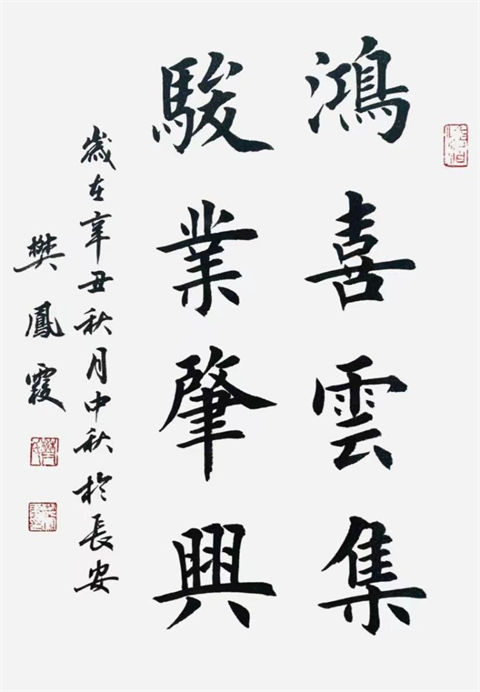 鴻喜雲集
駿業肇興
歲在辛丑秋月中秋於長安
樊鳳霞